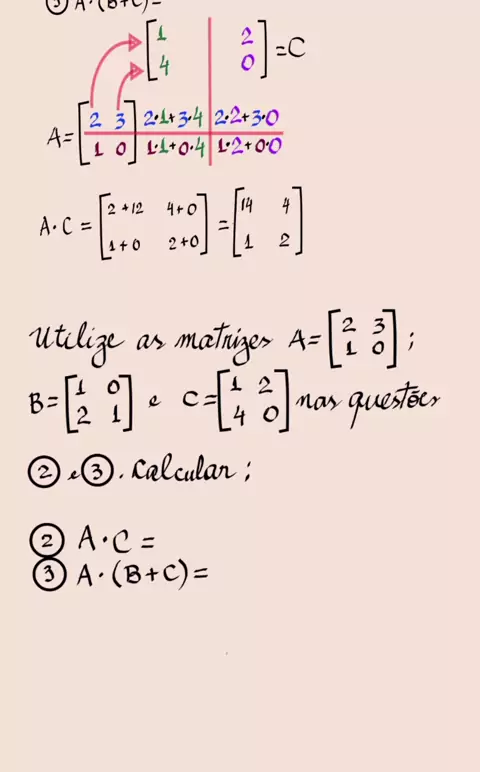 ③ A·(B+C)=
[1 2
4 0] = C
A = [2 3 2·1+3·4 2·2+3·0
1 0] 1·1+0·4 1·2+0·0
A·C = [2+12 4+0
1+0 2+0] = [14 4
1 2]
Utilize as matrizes A = [2 3
1 0] ;
B = [1 0
2 1] e C = [1 2
4 0] nas questões
② e ③. Calcular ;
② A·C =
③ A·(B+C) =